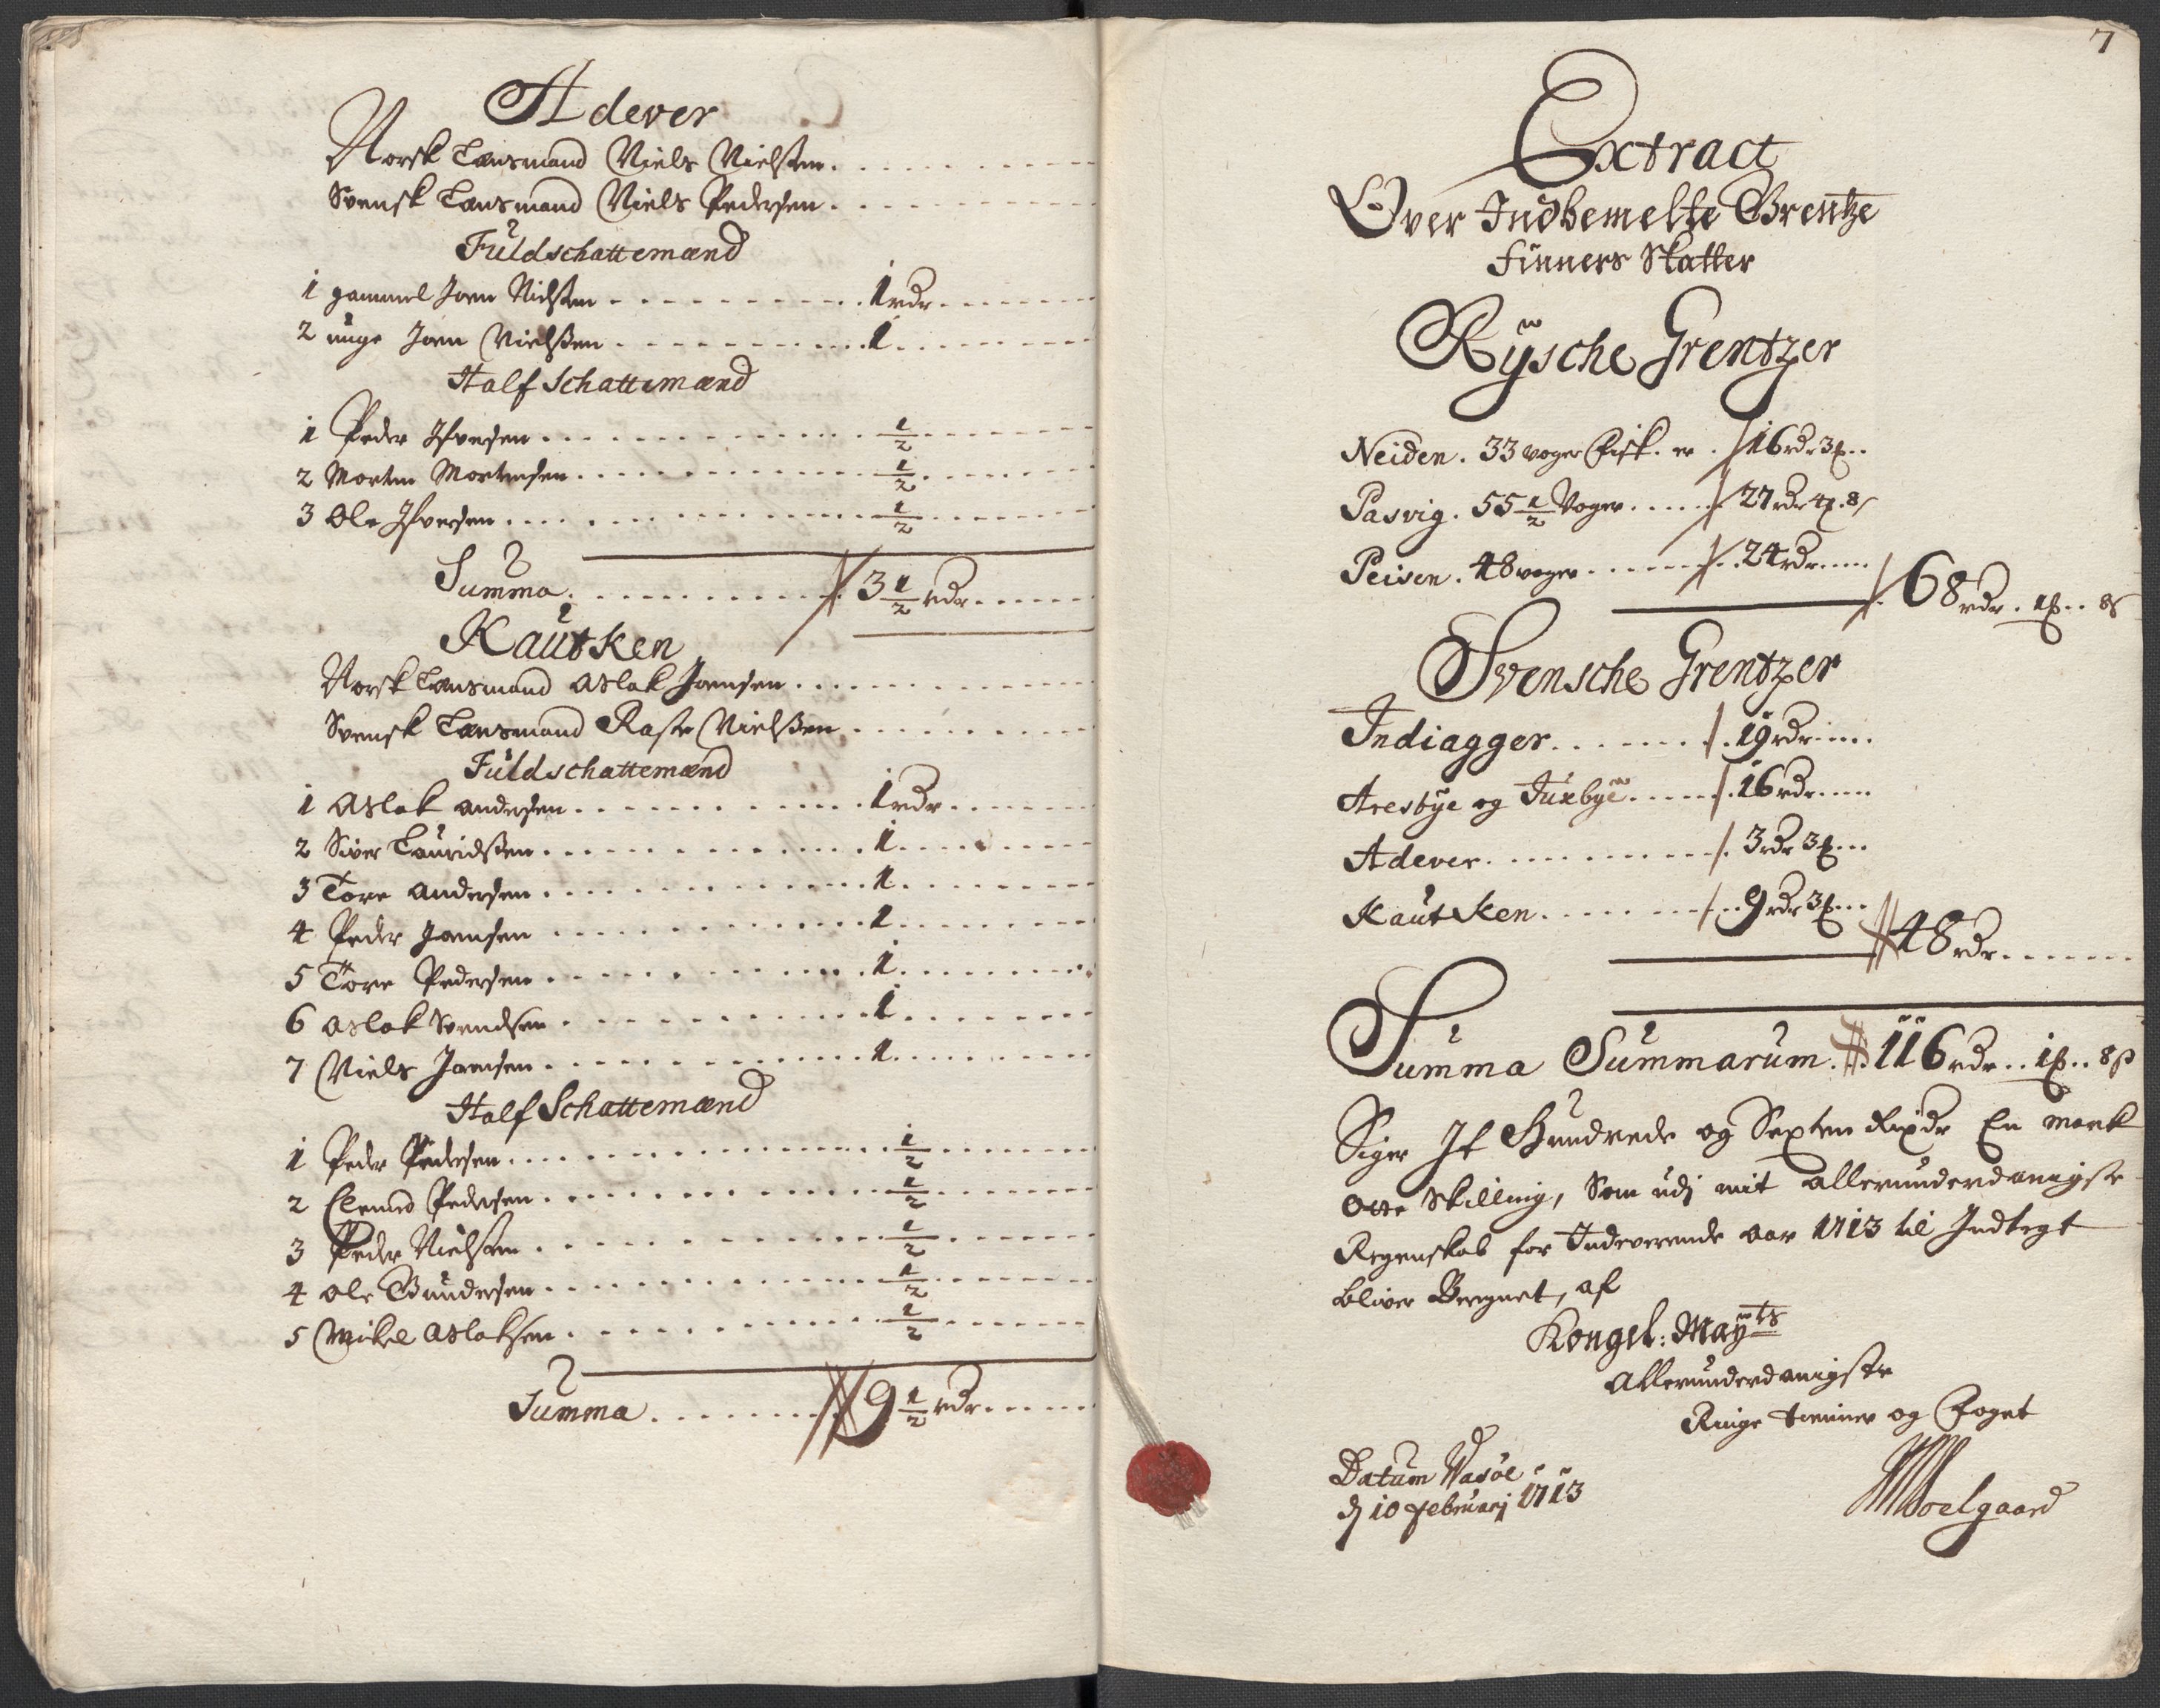 Adever
Norsk Lænsmand Niels Nielsen
Svensk Lænsmand Niels Pedersen
Fuldschattemænd
1 gammel Joen Nielsen 1 rdr
2 unge Joen Nielsen 1
Half Schattemænd
1 Peder Ifversen 1/2
2 Morten Mortensen 1/2
3 Ole Ifversen 1/2
Summa 3 1/2 rdr
Kautken
Norsk Lænsmand Aslak Joensen
Svensk Lænsmand Raste Nielsen
Fuldschattemænd
1 Aslak Andersen 1 rdr
2 Siver Lauridsen 1
3 Tore Andersen 1
4 Peder Joensen 1
5 Tore Pedersen 1
6 Aslak Svendsen 1
7 Niels Joensen 1
Half Schattemænd
1 Peder Pedersen 1/2
2 Clemed Pedersen 1/2
3 Peder Nielsen 1/2
4 Ole Gundersen 1/2
5 Mikel Aslaksen 1/2
Summa 9 1/2 rdr
7
Extract
Over Indbemelte Grentze
Finners Skatter
Rÿsche Grentzer
Neiden. 33 voger Fisk. er 16 rdr 3 ꝳ
Pasvig. 55 1/2 Voger 27 rdr 4 ꝳ 8 s
Peisen. 48 voger 24 rdr
68 rdr. 1 ꝳ 8 s
Svensche Grentzer
Indiagger 19 rdr
Aresbÿe og Juxbÿe 16 rdr
Adever 3 rdr 3 ꝳ
Kautken 9 rdr 3 ꝳ
48 rdr
Summa Summarum 116 rdr 1 ꝳ 8 s
Siger It Hundrede og Sexten Rixdr En mark
Otte Skilling, Som udj mit allerunderdanigste
Regenskab for Indeverende Aar 1713 til Indtegt
bliver Beregnet, af
Kongel: Maÿts
Allerunderdanigste
Ringe tienner og Foget
Datum Wasöe
dj 10 Februarj 1713
Soelgaard